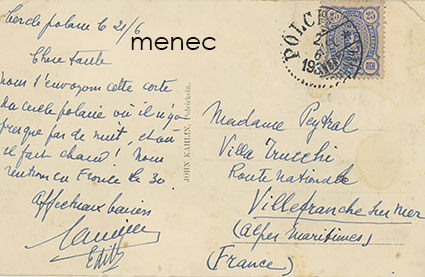 Cercle polaire le 21/6
menec
Chère Tante
Nous t'envoyons cette carte
du cercle polaire où il n'y a
presque pas de nuit, et où
il fait chaud! Nous
rentrons en France le 30.
Affectueux baisers
Edith
JOHN KAHLIN, Polcirkeln.
POLC
25
25
Madame Peyral
Villa Trucchi
Route Nationale
Villefranche sur mer
(Alpes Maritimes)
(France)